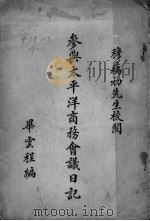 穆藕初先生校閱
參與太平洋商務會議日記
畢雲程編